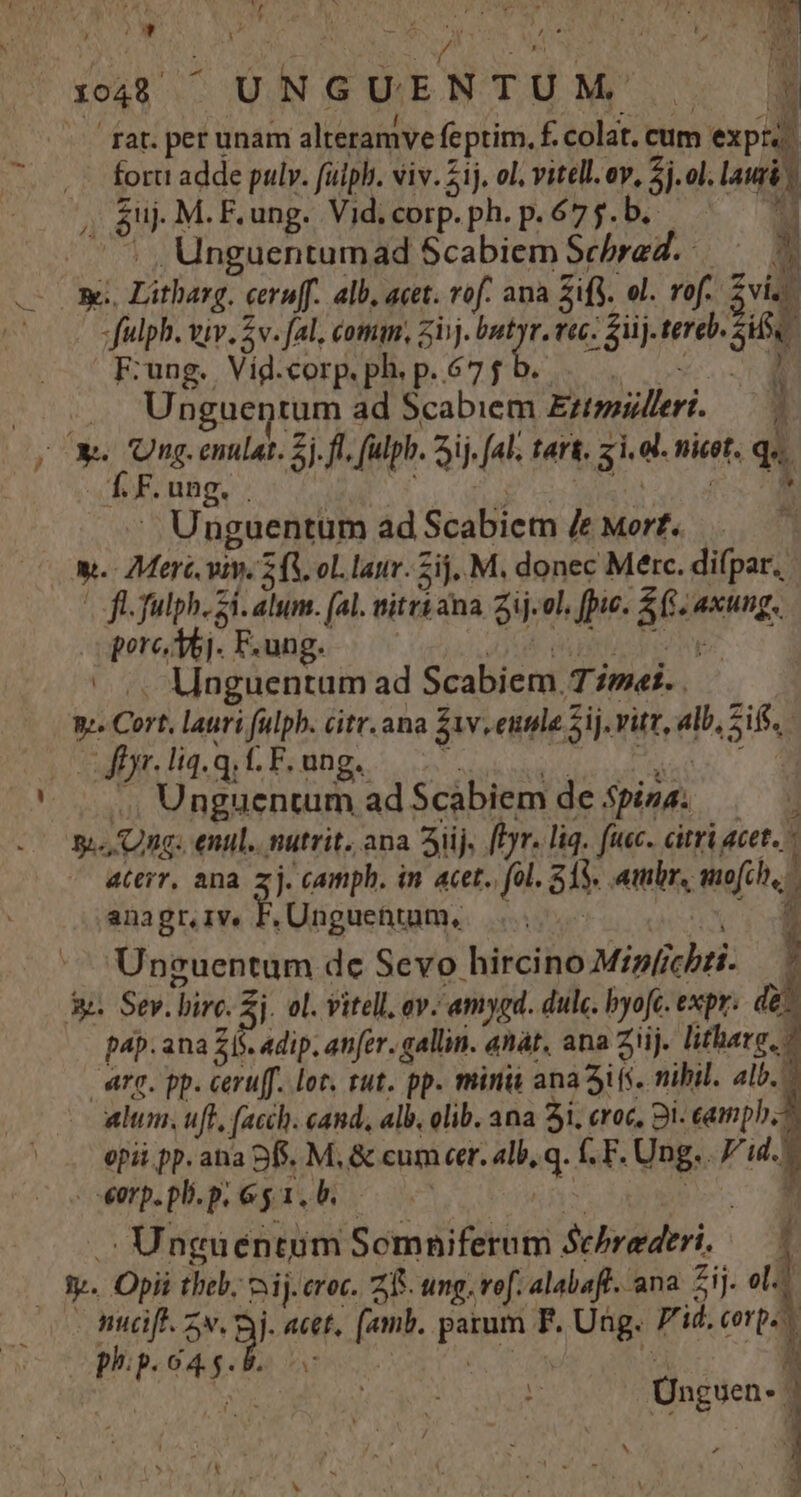 1048 UNGUENTUM
rat. per unam alteramve ſeptim. f. colat. cum expr.
fortı adde pulv. ſulph. viv. ℥ij. ol. vitell. ov. ℥j. ol. lauri
℥iij. M. F. ung. Vid. corp. ph. p. 675. b.
Unguentum ad Scabiem Schrœd.
℞. Litharg. ceruſſ. alb. acet. roſ. ana ℥iſſ. ol. roſ. ℥vi.
ſulph. viv. ℥v. ſal. comm. ℥iij. butyr. rec. ℥iij. tereb. ℥iſſ.
F. ung. Vid. corp. ph. p. 675 b.
Unguentum ad Scabiem Ettmülleri.
℞. Ung. enulat. ℥j. fl. ſulph. ʒij. ſal. tart. ʒi. ol. nicot. q.
ſ. F. ung.
Unguentum ad Scabiem le Mort.
℞. Merc. viv. ℥ſſ. ol. laur. ℥ij. M. donec Merc. diſpar.
fl. ſulph. ℥i. alum. ſal. nitri ana ʒij. ol. ſpic. ℥ſſ. axung.
porc. ℔j. F. ung.
Unguentum ad Scabiem Timæi.
℞. Cort. lauri ſulph. citr. ana ℥iv. enulæ ℥ij. vitr. alb. ℥iſſ.
ſtyr. liq. q. ſ. F. ung.
Unguentum ad Scabiem de Spina.
℞. Ung. enul. nutrit. ana ℥iij. ſtyr. liq. ſucc. citri acet.
acerr. ana ʒj. camph. in acet. ſol. ʒſſ. ambr. moſch.
ana gr. iv. F. Unguentum.
Unguentum de Sevo hircino Minſichti.
℞. Sev. hirc. ℥j. ol. vitell. ov. amygd. dulc. hyoſc. expr. de
pap. ana ℥ſſ. adip. anſer. gallin. anat. ana ʒiij. litharg.
arg. pp. ceruſſ. lot. tut. pp. minii ana ʒiſſ. nihil. alb.
alum. uſt. ſacch. cand. alb. olib. ana ʒi. croc. ℈i. camph.
opii pp. ana ℈ſſ. M. & cum cer. alb. q. ſ. F. Ung. Vid.
corp. ph. p. 651. b.
Unguentum Somniferum Schrœderi.
℞. Opii theb. ℈ij. croc. ʒſſ. ung. roſ. alabaſt. ana ℥ij. ol.
nuciſt. ʒv. ℈j. acet. ſamb. parum F. Ung. Vid. corp.
ph. p. 645. b.
Unguen-